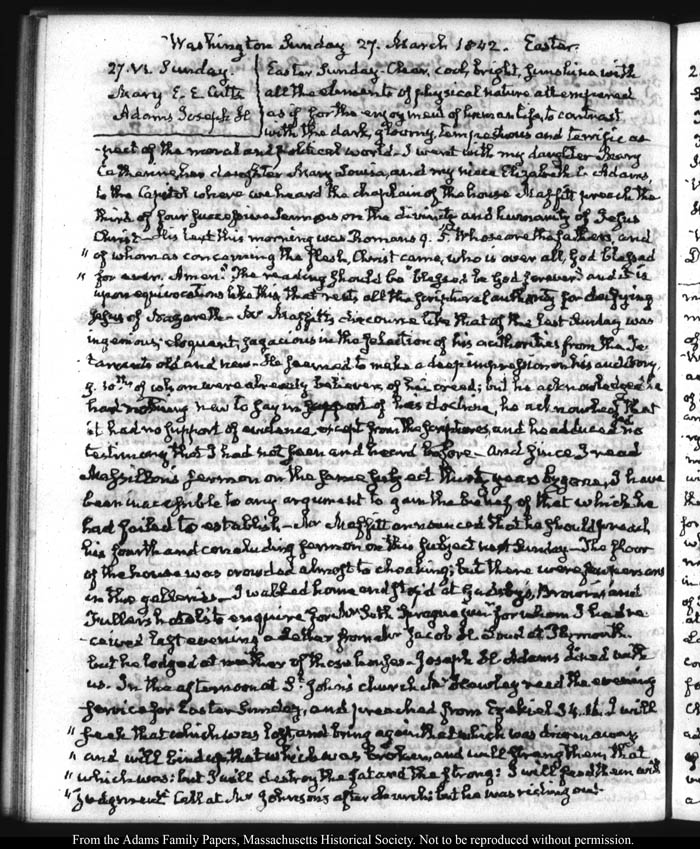 Washington Sunday 27. March 1842. Easter.
27. VI. Sunday.
Mary E. E. Cutts
Adams Joseph H
Easter Sunday. Clear, cool, bright, sunshine with
all the elements of physical nature attempered
as if for the enjoyment of human life, to contrast
with the dark, gloomy, tempestuous and terrific as-
pect of the moral and political world. I went with my daughter Mary
Catherine, her daughter Mary Louisa, and my niece Elizabeth C. Adams,
to the Capitol where we heard the chaplain of the house Maffitt preach the
third of four successive Sermons on the divinity and humanity of Jesus
Christ. His text this morning was Romans 9. 5. Whose are the fathers, and
" of whom as concerning the flesh, Christ came, who is over all, God blessed
" for ever. Amen". The reading should be "blessed be God forever" and it is
upon equivocations like this that rests all the scriptural authority for deifying
Jesus of Nazareth. Mr Maffitt's discourse like that of the last Sunday was
ingenious, eloquent, sagacious in the selection of his authorities from the Te-
taments old and new. He seemed to make a deep impression on his auditory,
9. 10ths of whom were already believers of his creed; but he acknowledged he
had nothing new to say in support of his doctrine, he acknowledged that
it had no support of evidence, except from the Scriptures, and he adduced no
testimony that I had not seen and heard before. And since I read
Massillon's sermon on the same subject thirty years bygone, I have
been inaccessible to any argument to gain the belief of that which he
had failed to establish. Mr Maffitt announced that he should preach
his fourth and concluding sermon on this subject next Sunday. The floor
of the house was crowded almost to choaking; but there were few persons
in the galleries. I walked home and stop'd at Gadsby's, Brown's and
Fuller's hotels to enquire for Mr Seth Sprague junr for whom I had re-
ceived last evening a letter from Mr Jacob H. Loud at Plymouth.
but he lodged at neither of those houses. Joseph H. Adams dined with
us. In the afternoon at St. John's church Mr Hawley read the evening
service for Easter Sunday, and preached from Ezekiel 34. 16. I will
" seek that which was lost, and bring again that which was driven away,
" and will bind up that which was broken, and will strengthen that
" which was: but I will destroy the fat and the strong: I will feed them with
" judgment. Call at Mr Johnson's after church: but he was riding out.
From the Adams Family Papers, Massachusetts Historical Society. Not to be reproduced without permission.